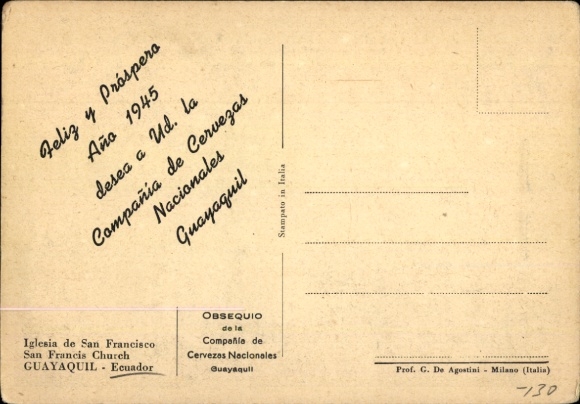 Feliz y Próspero
Año 1945
desea a Ud. la
Compañia de Cervezas
Nacionales
Guayaquil
Iglesia de San Francisco
San Francis Church
GUAYAQUIL - Ecuador
OBSEQUIO
de la
Compañía de
Cervezas Nacionales
Guayaquil
Stampato in Italia
Prof. G. De Agostini - Milano (Italia)
-130